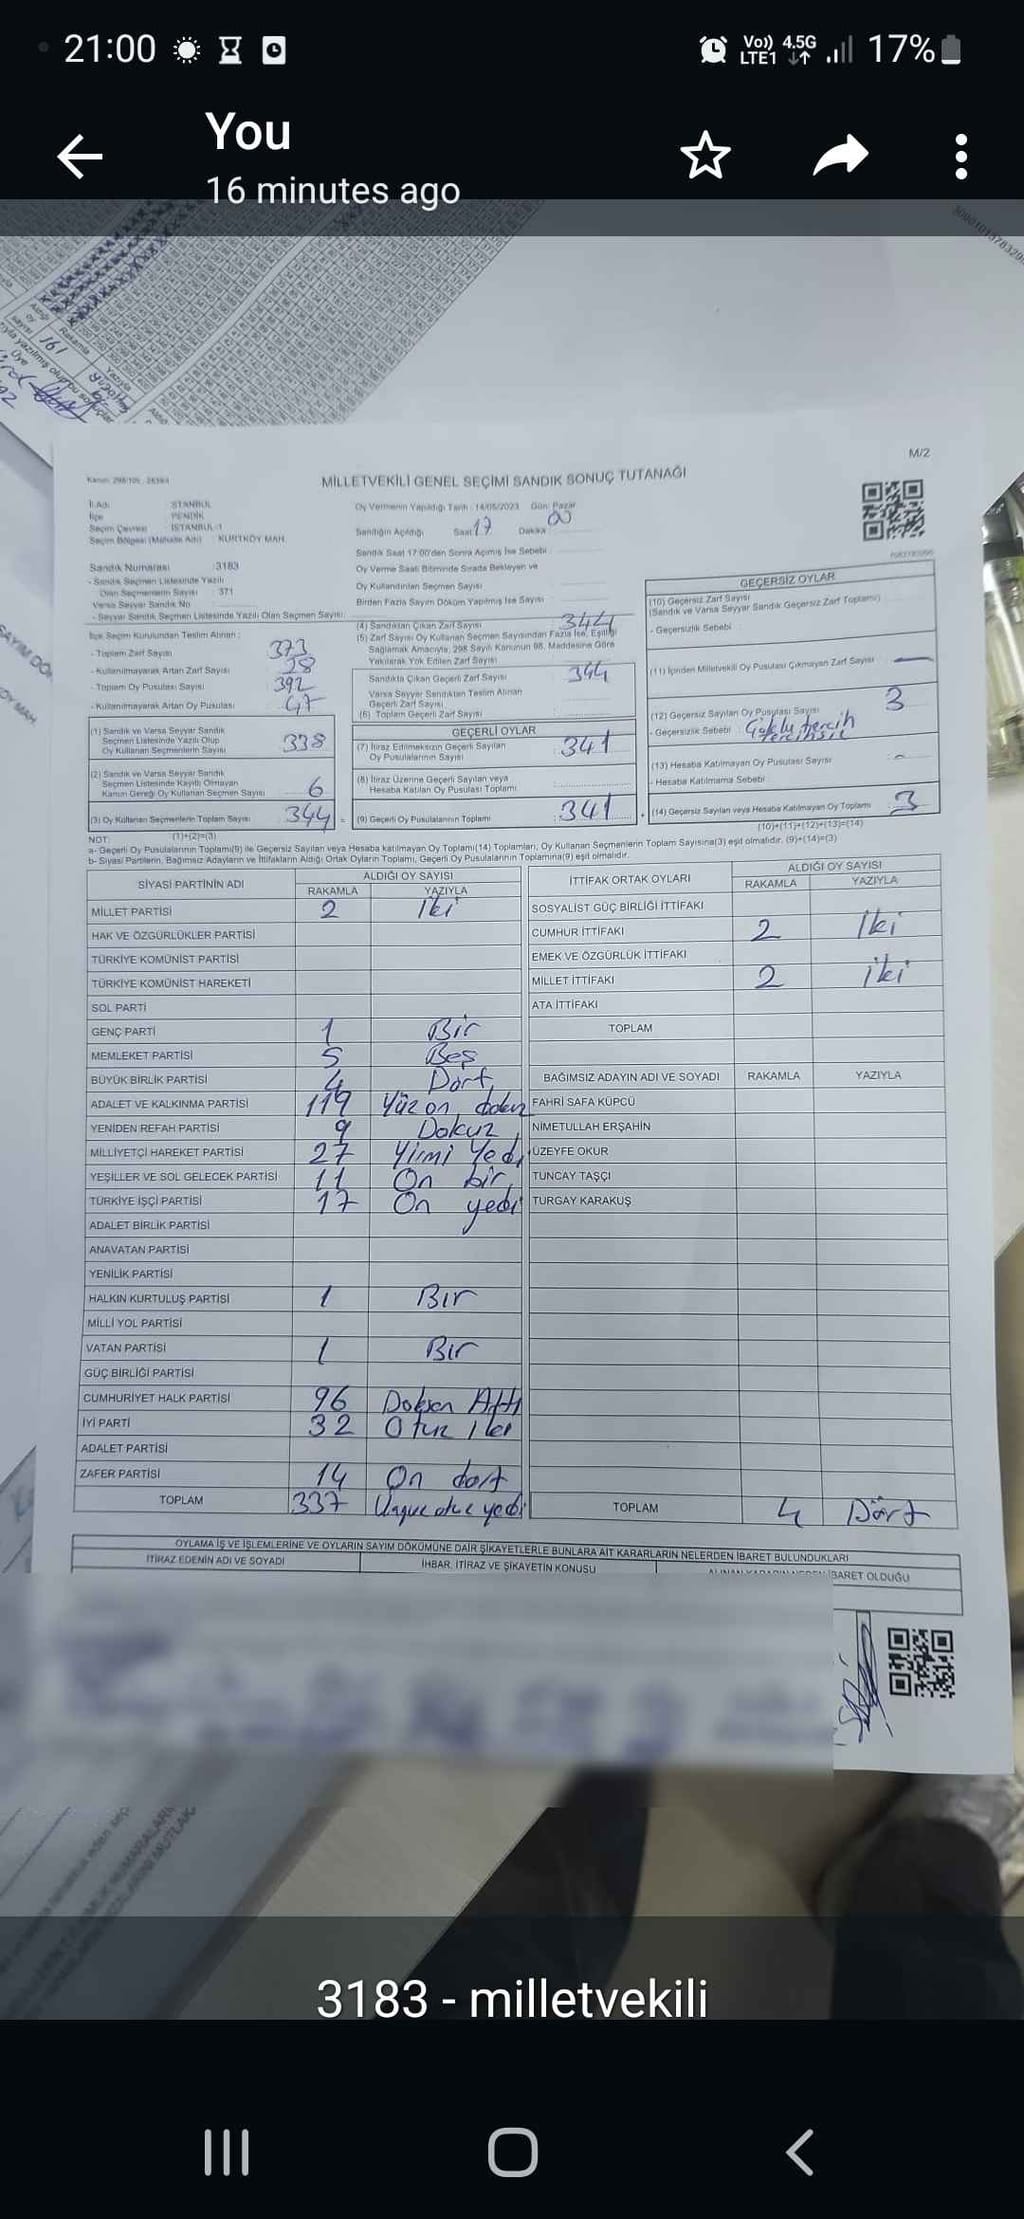 21:00
Vo)) 4.5G
LTE1
17%
You
16 minutes ago
161
M/2
MİLLETVEKİLİ GENEL SEÇİMİ SANDIK SONUÇ TUTANAĞI
İl Adı : İSTANBUL
İlçe : PENDİK
Seçim Çevresi : İSTANBUL-1
Seçim Bölgesi (Mahalle Adı) : KURTKÖY MAH.
Sandık Numarası : 3183
- Sandık Seçmen Listesinde Yazılı
Olan Seçmenlerin Sayısı : 371
Varsa Seyyar Sandık No
- Seyyar Sandık Seçmen Listesinde Yazılı Olan Seçmen Sayısı:
İlçe Seçim Kurulundan Teslim Alınan :
- Toplam Zarf Sayısı 373
- Kullanılmayarak Artan Zarf Sayısı 28
- Toplam Oy Pusulası Sayısı 392
- Kullanılmayarak Artan Oy Pusulası 47
(1) Sandık ve Varsa Seyyar Sandık
Seçmen Listesinde Yazılı Olup
Oy Kullanan Seçmenlerin Sayısı 338
(2) Sandık ve Varsa Seyyar Sandık
Seçmen Listesinde Kayıtlı Olmayan
Kanun Gereği Oy Kullanan Seçmen Sayısı 6
(3) Oy Kullanan Seçmenlerin Toplam Sayısı 344
(1)+(2)=(3)
Oy Vermenin Yapıldığı Tarih : 14/05/2023 Gün: Pazar
Sandığın Açıldığı Saat 17 Dakika 00
Sandık Saat 17:00'den Sonra Açılmış İse Sebebi
Oy Verme Saati Bitiminde Sırada Bekleyen ve
Oy Kullandırılan Seçmen Sayısı
Birden Fazla Sayım Döküm Yapılmış İse Sayısı
(4) Sandıktan Çıkan Zarf Sayısı 344
(5) Zarf Sayısı Oy Kullanan Seçmen Sayısından Fazla İse, Eşitliği
Sağlamak Amacıyla, 298 Sayılı Kanunun 98. Maddesine Göre
Yakılarak Yok Edilen Zarf Sayısı
Sandıkta Çıkan Geçerli Zarf Sayısı 344
Varsa Seyyar Sandıktan Teslim Alınan
Geçerli Zarf Sayısı
(6) Toplam Geçerli Zarf Sayısı
GEÇERLİ OYLAR
(7) İtiraz Edilmeksizin Geçerli Sayılan
Oy Pusulalarının Sayısı 341
(8) İtiraz Üzerine Geçerli Sayılan veya
Hesaba Katılan Oy Pusulası Toplamı
(9) Geçerli Oy Pusulalarının Toplamı 341
GEÇERSİZ OYLAR
(10) Geçersiz Zarf Sayısı
(Sandık ve Varsa Seyyar Sandık Geçersiz Zarf Toplamı)
- Geçersizlik Sebebi
(11) İçinden Milletvekili Oy Pusulası Çıkmayan Zarf Sayısı —
(12) Geçersiz Sayılan Oy Pusulası Sayısı 3
- Geçersizlik Sebebi : Çoklu tercih
tercihsiz
(13) Hesaba Katılmayan Oy Pusulası Sayısı -
- Hesaba Katılmama Sebebi
(14) Geçersiz Sayılan veya Hesaba Katılmayan Oy Toplamı 3
(10)+(11)+(12)+(13)=(14)
NOT:
a- Geçerli Oy Pusulalarının Toplamı(9) ile Geçersiz Sayılan veya Hesaba katılmayan Oy Toplamı(14) Toplamları, Oy Kullanan Seçmenlerin Toplam Sayısına(3) eşit olmalıdır. (9)+(14)=(3)
b- Siyasi Partilerin, Bağımsız Adayların ve İttifakların Aldığı Ortak Oyların Toplamı, Geçerli Oy Pusulalarının Toplamına(9) eşit olmalıdır.
SİYASİ PARTİNİN ADI
ALDIĞI OY SAYISI
RAKAMLA YAZIYLA
MİLLET PARTİSİ 2 İki
HAK VE ÖZGÜRLÜKLER PARTİSİ
TÜRKİYE KOMÜNİST PARTİSİ
TÜRKİYE KOMÜNİST HAREKETİ
SOL PARTİ
GENÇ PARTİ 1 Bir
MEMLEKET PARTİSİ 5 Beş
BÜYÜK BİRLİK PARTİSİ 4 Dört
ADALET VE KALKINMA PARTİSİ 119 Yüz on
YENİDEN REFAH PARTİSİ 9 Dokuz
MİLLİYETÇİ HAREKET PARTİSİ 27 Yirmi Yedi
YEŞİLLER VE SOL GELECEK PARTİSİ 11 On bir
TÜRKİYE İŞÇİ PARTİSİ 17 On yedi
ADALET BİRLİK PARTİSİ
ANAVATAN PARTİSİ
YENİLİK PARTİSİ
HALKIN KURTULUŞ PARTİSİ 1 Bır
MİLLİ YOL PARTİSİ
VATAN PARTİSİ 1 Bır
GÜÇ BİRLİĞİ PARTİSİ
CUMHURİYET HALK PARTİSİ 96 Doksan Altı
İYİ PARTİ 32 Otuz İki
ADALET PARTİSİ
ZAFER PARTİSİ 14 On dört
TOPLAM 337
İTTİFAK ORTAK OYLARI
ALDIĞI OY SAYISI
RAKAMLA YAZIYLA
SOSYALİST GÜÇ BİRLİĞİ İTTİFAKI
CUMHUR İTTİFAKI 2 İki
EMEK VE ÖZGÜRLÜK İTTİFAKI
MİLLET İTTİFAKI 2 iki
ATA İTTİFAKI
TOPLAM
BAĞIMSIZ ADAYIN ADI VE SOYADI RAKAMLA YAZIYLA
FAHRİ SAFA KÜPCÜ
NİMETULLAH ERŞAHİN
ÜZEYFE OKUR
TUNCAY TAŞÇI
TURGAY KARAKUŞ
TOPLAM 4 Dört
OYLAMA İŞ VE İŞLEMLERİNE VE OYLARIN SAYIM DÖKÜMÜNE DAİR ŞİKAYETLERLE BUNLARA AİT KARARLARIN NELERDEN İBARET BULUNDUKLARI
İTİRAZ EDENİN ADI VE SOYADI İHBAR, İTİRAZ VE ŞİKAYETİN KONUSU İBARET OLDUĞU
3183 - milletvekili